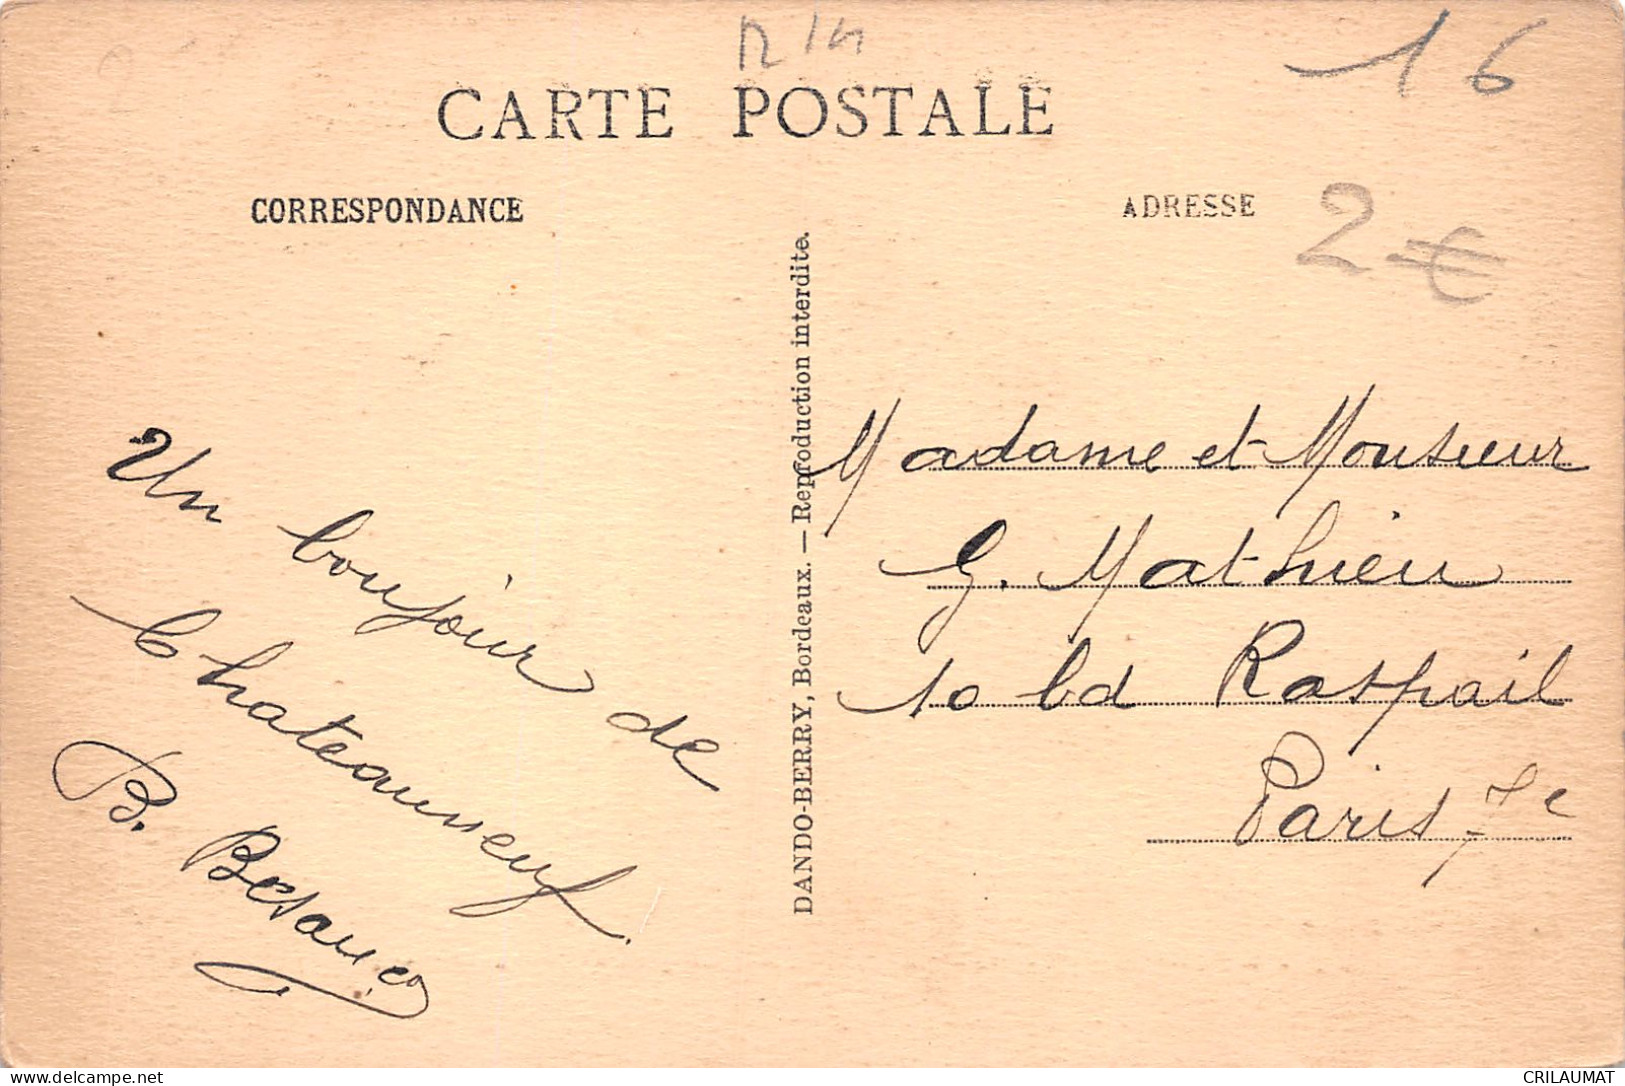 16
CARTE POSTALE
CORRESPONDANCE
ADRESSE
2 €
Un bonjour de
Chateauneuf.
B.
DANDO-BERRY, Bordeaux. — Reproduction interdite.
Madame et Monsieur
G. Mathieu
10 bd Raspail
Paris 7e
CRILAUMAT